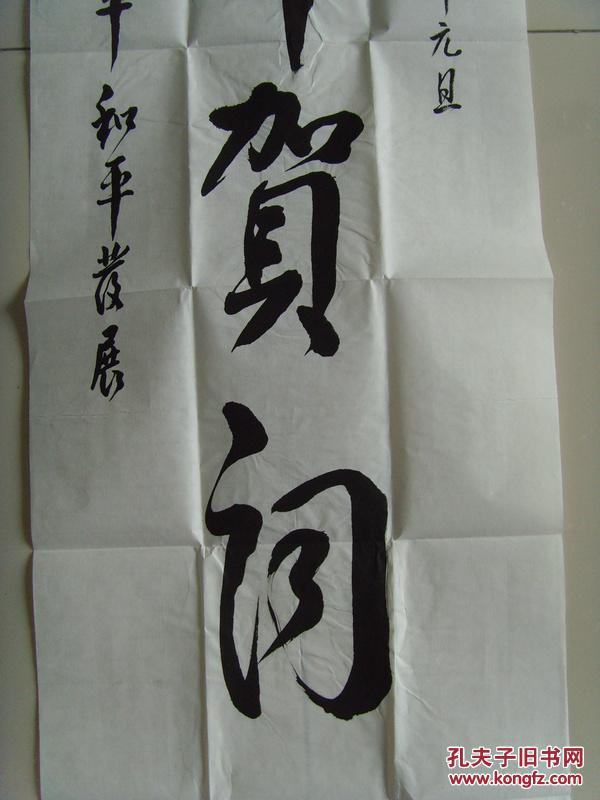 元旦
賀詞
和平發展
孔夫子旧书网
www.kongfz.com